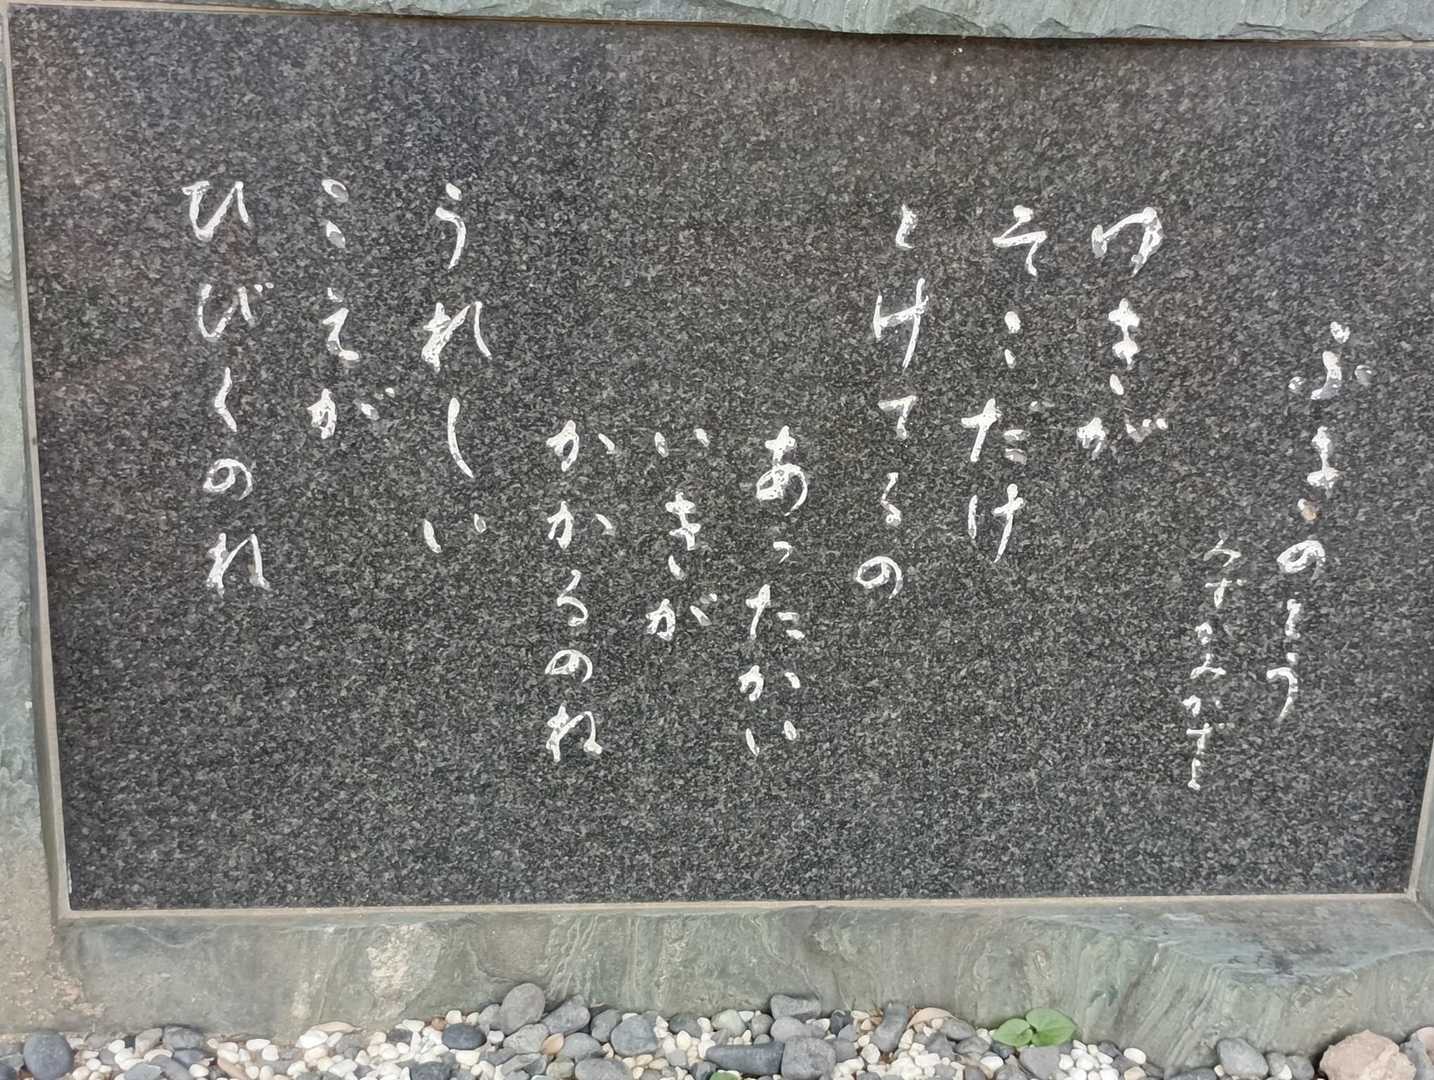 ふきのとう
みずかみかずよ
ゆきが
そこだけ
とけてるの
あったかい
いきが
かかるのね
うれしい
こえが
ひびくのね